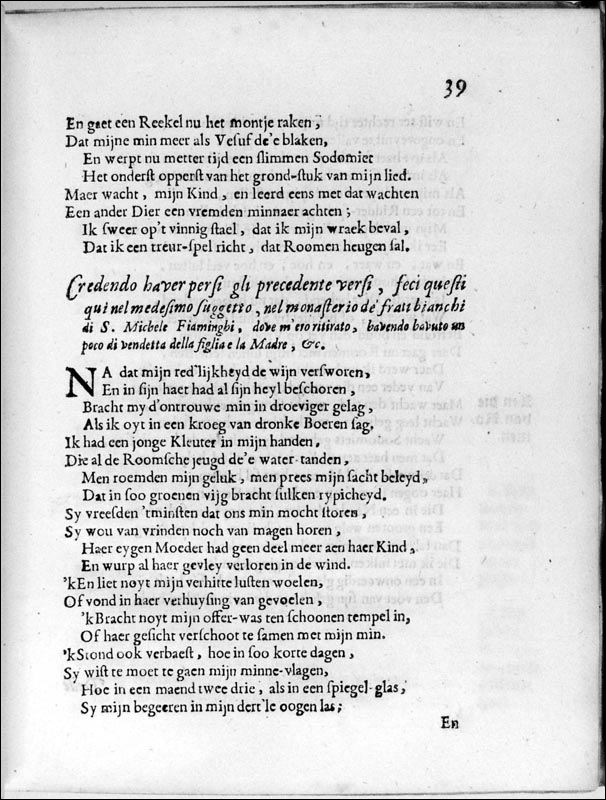 39
En gaet een Reekel nu het montje raken,
Dat mijne min meer als Vesuf de'e blaken,
En werpt nu metter tijd een slimmen Sodomiet
Het onderst opperst van het grond-stuk van mijn lied.
Maer wacht, mijn Kind, en leerd eens met dat wachten
Een ander Dier een vremden minnaer achten;
Ik sweer op't vinnig stael, dat ik mijn wraek beval,
Dat ik een treur-spel richt, dat Roomen heugen sal.
Credendo haver persi gli precedente versi, feci questi
qui nel medesimo suggetto, nel monasterio de frati bianchi
di S. Michele Fiaminghi, dove m'ero ritirato, havendo havuto un
poco di vendetta della figlia e la Madre, &c.
NA dat mijn red'lijkheyd de wijn versworen,
En in sijn haet had al sijn heyl beschoren,
Bracht my d'ontrouwe min in droeviger gelag,
Als ik oyt in een kroeg van dronke Boeren sag.
Ik had een jonge Kleuter in mijn handen,
Die al de Roomsche jeugd de'e water-tanden,
Men roemden mijn geluk, men prees mijn sacht beleyd,
Dat in soo groenen vijg bracht sulken rypicheyd.
Sy vreesden 'tminsten dat ons min mocht storen,
Sy wou van vrinden noch van magen horen,
Haer eygen Moeder had geen deel meer aen haer Kind,
En wurp al haer gevley verloren in de wind.
'kEn liet noyt mijn verhitte lusten woelen,
Of vond in haer verhuysing van gevoelen,
'kBracht noyt mijn offer-was ten schoonen tempel in,
Of haer gesicht verschoot te samen met mijn min.
'kStond ook verbaest, hoe in soo korte dagen,
Sy wist te moet te gaen mijn minne-vlagen,
Hoe in een maend twee drie, als in een spiegel-glas,
Sy mijn begeeren in mijn dert'le oogen las;
En